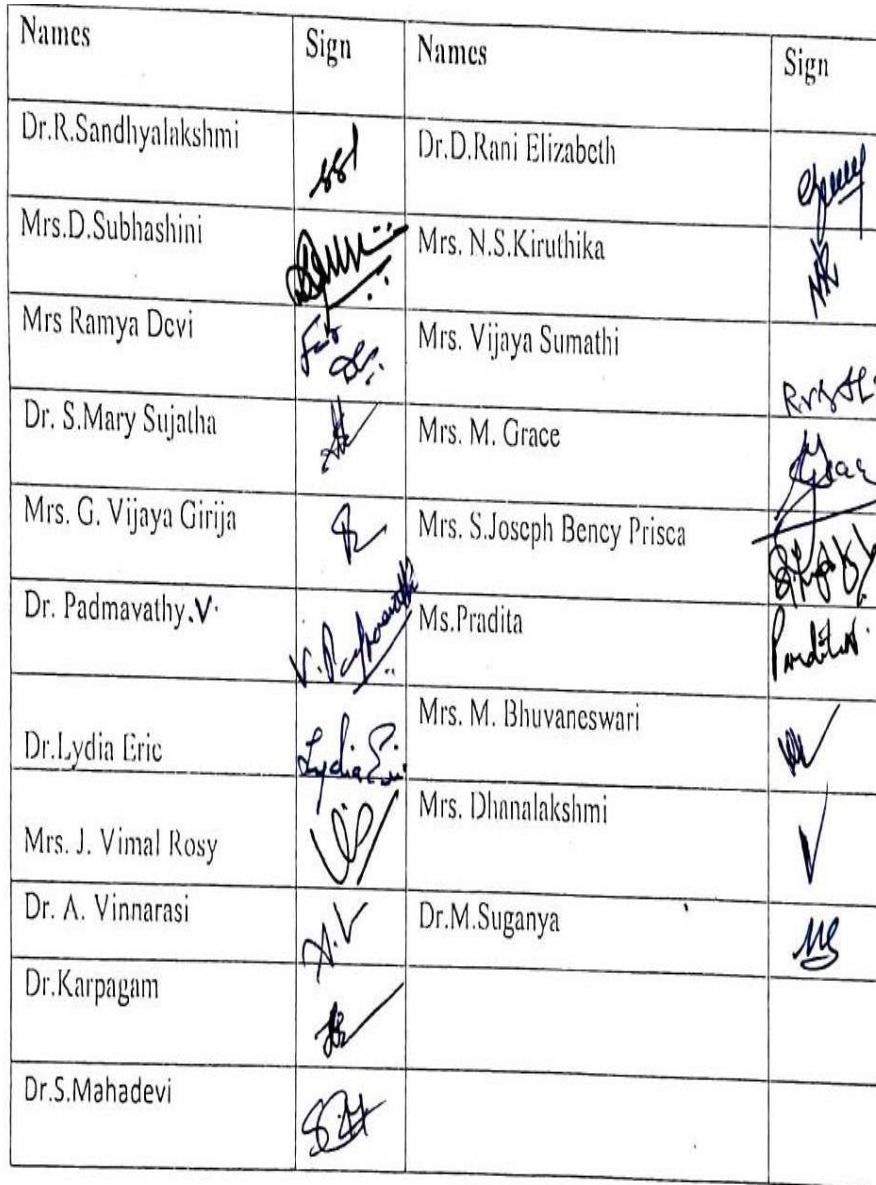 Names Sign Names Sign
Dr.R.Sandhyalakshmi ssl Dr.D.Rani Elizabeth
Mrs.D.Subhashini Mrs. N.S.Kiruthika
Mrs Ramya Devi For Mrs. Vijaya Sumathi
Dr. S.Mary Sujatha Mrs. M. Grace Grace
Mrs. G. Vijaya Girija Mrs. S.Joseph Bency Prisca
Dr. Padmavathy.V. V. Padmavathi Ms.Pradita Pradita
Dr.Lydia Eric Lydia Eric Mrs. M. Bhuvaneswari
Mrs. J. Vimal Rosy Mrs. Dhanalakshmi
Dr. A. Vinnarasi A.V Dr.M.Suganya MS
Dr.Karpagam
Dr.S.Mahadevi